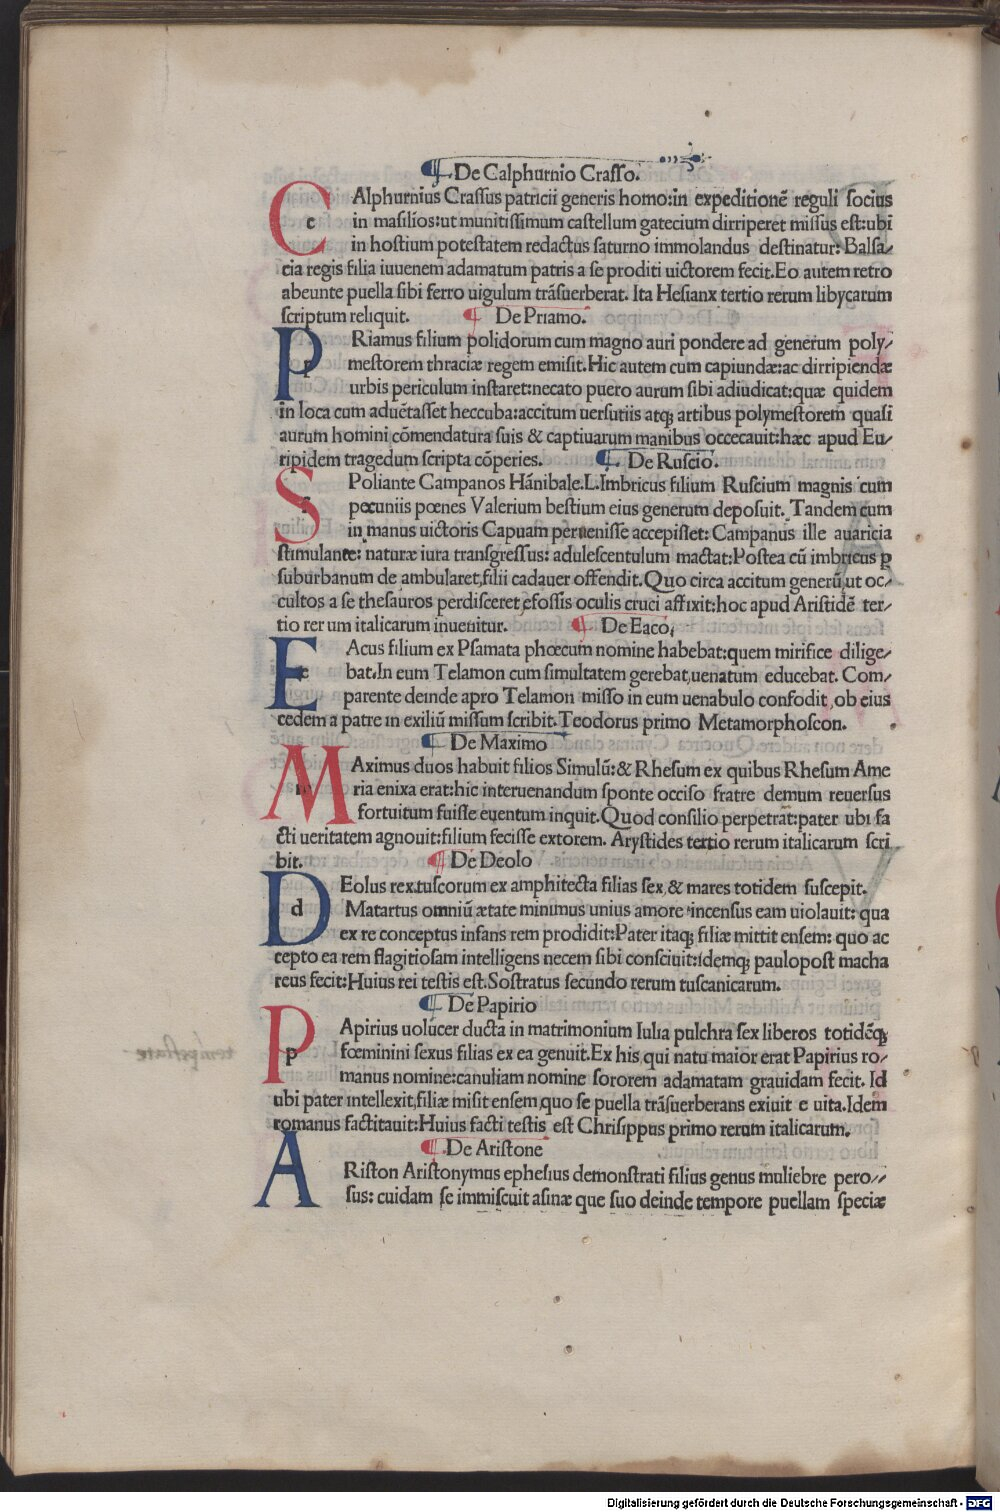 De Calphurnio Crasso.
CAlphurnius Crassus patricii generis homo:in expeditionē reguli socius
in masilios:ut munitissimum castellum gatecium dirriperet missus est:ubi
in hostium potestatem redactus saturno immolandus destinatur: Balsa/
cia regis filia iuuenem adamatum patris a se proditi uictorem fecit.Eo autem retro
abeunte puella sibi ferro uigulum trāsuerberat. Ita Hesianx tertio rerum libycarum
scriptum reliquit. De Priamo.
PRiamus filium polidorum cum magno auri pondere ad generum poly/
mestorem thraciæ regem emisit.Hic autem cum capiundæ:ac dirripiendæ
urbis periculum instaret:necato puero aurum sibi adiudicat:quæ quidem
in loca cum aduētasset heccuba:accitum uersutiis atq; artibus polymestorem quasi
aurum homini cōmendatura suis & captiuarum manibus occecauit:hæc apud Eu/
ripidem tragedum scripta cōperies. De Ruscio.
SPoliante Campanos Hānibale.L.Imbricus filium Ruscium magnis cum
pecuniis pœnes Valerium bestium eius generum deposuit. Tandem cum
in manus uictoris Capuam peruenisse accepisset: Campanus ille auaricia
stimulante: naturæ iura transgressus: adulescentulum mactat:Postea cū imbricus ꝑ
suburbanum de ambularet,filii cadauer offendit.Quo circa accitum generū,ut oc/
cultos a se thesauros perdisceret,efossis oculis cruci affixit:hoc apud Aristidē ter/
tio rer um italicarum inuenitur. De Eaco.
EAcus filium ex Psamata phœcum nomine habebat:quem mirifice dilige/
bat.In eum Telamon cum simultatem gerebat,uenatum educebat. Com/
parente deinde apro Telamon misso in eum uenabulo confodit ,ob eius
cedem a patre in exiliū missum scribit.Teodorus primo Metamorphoseon.
De Maximo
MAximus duos habuit filios Simulū:& Rhesum ex quibus Rhesum Ame
ria enixa erat:hic interuenandum sponte occiso fratre demum reuersus
fortuitum fuisse euentum inquit.Quod consilio perpetrāt:pater ubi fa
cti ueritatem agnouit:filium fecisse extorem. Arystides tertio rerum italicarum scri
bit. De Deolo
DEolus rex.tuscorum ex amphitecta filias sex,& mares totidem suscepit.
Matartus omniū ætate minimus unius amore incensus eam uiolauit: qua
ex re conceptus infans rem prodidit:Pater itaq; filiæ mittit ensem: quo ac
cepto ea rem flagitiosam intelligens necem sibi consciuit:idemq; paulopost macha
reus fecit:Huius rei testis est.Sostratus secundo rerum tuscanicarum.
De Papirio
PApirius uolucer ducta in matrimonium Iulia pulchra sex liberos totidēq;
fœminini sexus filias ex ea genuit.Ex his,qui natu maior erat Papirius ro/
manus nomine:canuliam nomine sororem adamatam grauidam fecit. Id
ubi pater intellexit,filiæ misit ensem,quo se puella trāsuerberans exiuit e uita.Idem
romanus factitauit:Huius facti testis est Chrisippus primo rerum italicarum.
De Aristone
ARiston Aristonymus ephesius demonstrati filius genus muliebre pero//
sus: cuidam se immiscuit asinæ que suo deinde tempore puellam speciæ
Digitalisierung gefördert durch die Deutsche Forschungsgemeinschaft - DFG